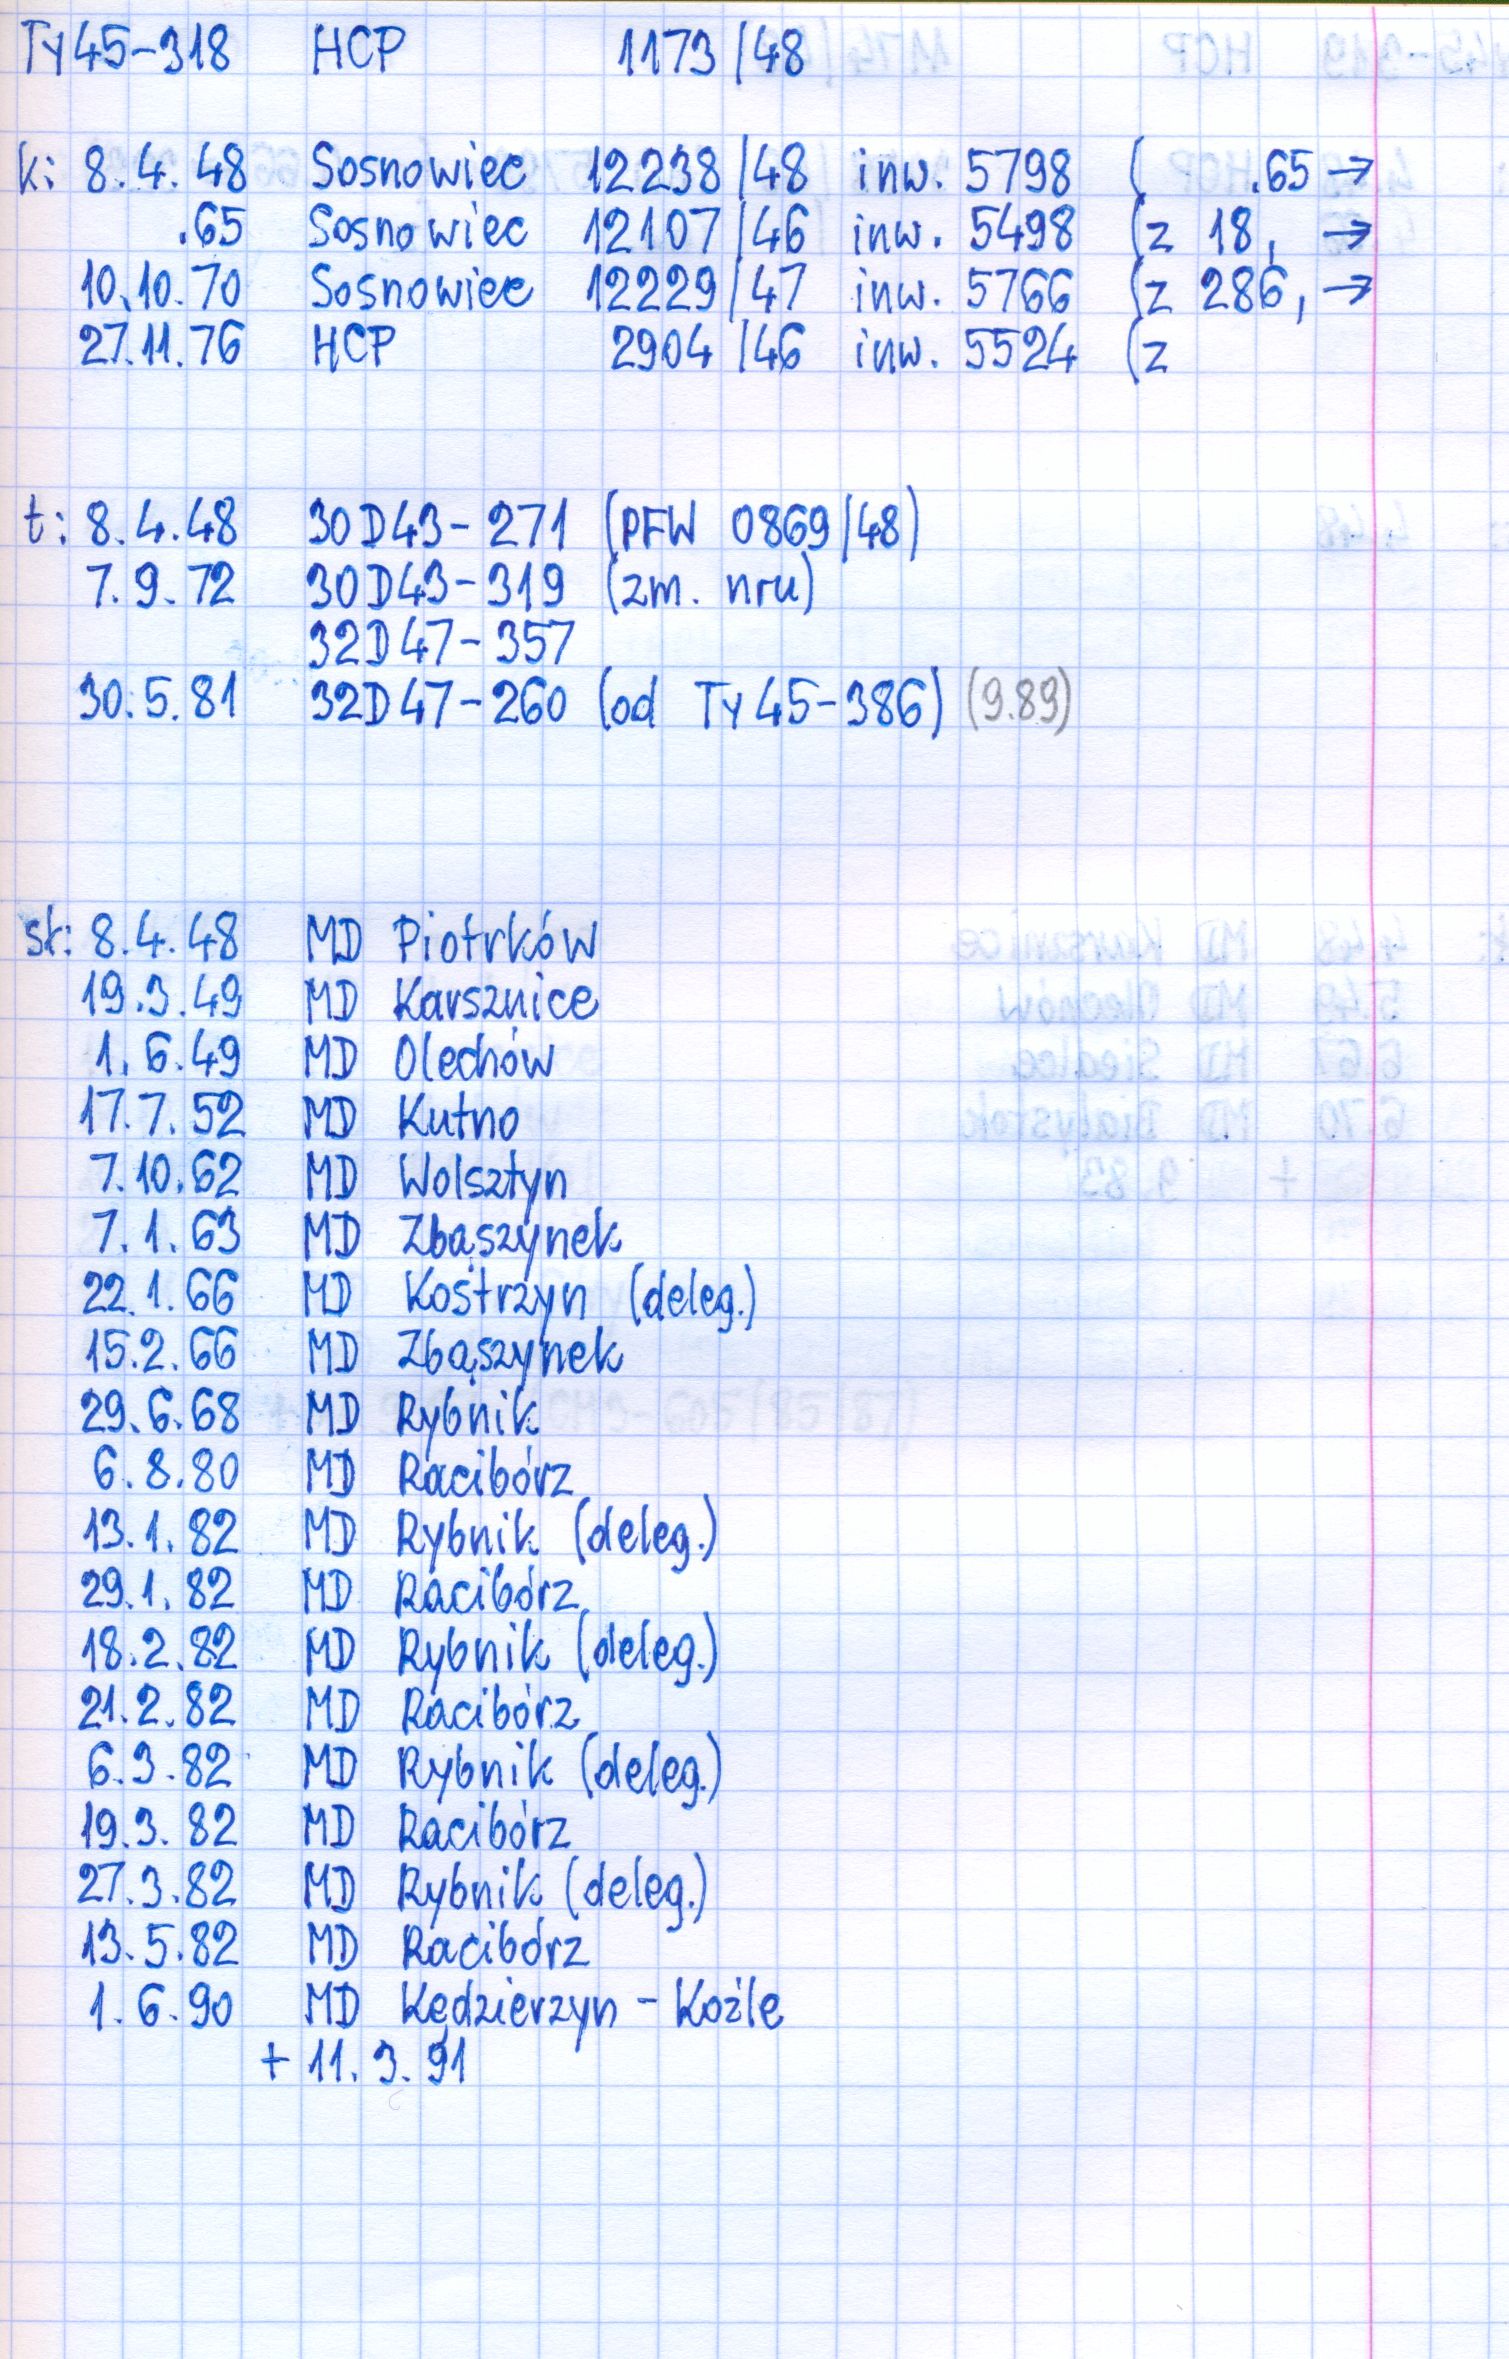 Ty45-318 HCP 1173/48
k: 8.4.48 Sosnowiec 12238/48 inw. 5798 ( .65 →
.65 Sosnowiec 12107/46 inw. 5498 (z 18, →
10.10.70 Sosnowiec 12229/47 inw. 5766 (z 286, →
27.11.76 HCP 2904/46 inw. 5524 (z
t: 8.4.48 30D43-271 (PFW 0869/48)
7.9.72 30D43-319 (zm. nru)
32D47-357
30.5.81 32D47-260 (od Ty45-386) (9.89)
st: 8.4.48 MD Piotrków
19.3.49 MD Karsznice
1.6.49 MD Olechów
17.7.52 MD Kutno
7.10.62 MD Wolsztyn
7.1.63 MD Zbąszynek
22.1.66 MD Kostrzyn (deleg.)
15.2.66 MD Zbąszynek
29.6.68 MD Rybnik
6.8.80 MD Racibórz
13.1.82 MD Rybnik (deleg.)
29.1.82 MD Racibórz
18.2.82 MD Rybnik (deleg.)
21.2.82 MD Racibórz
6.3.82 MD Rybnik (deleg.)
19.3.82 MD Racibórz
27.3.82 MD Rybnik (deleg.)
13.5.82 MD Racibórz
1.6.90 MD Kędzierzyn-Koźle
+ 11.3.91